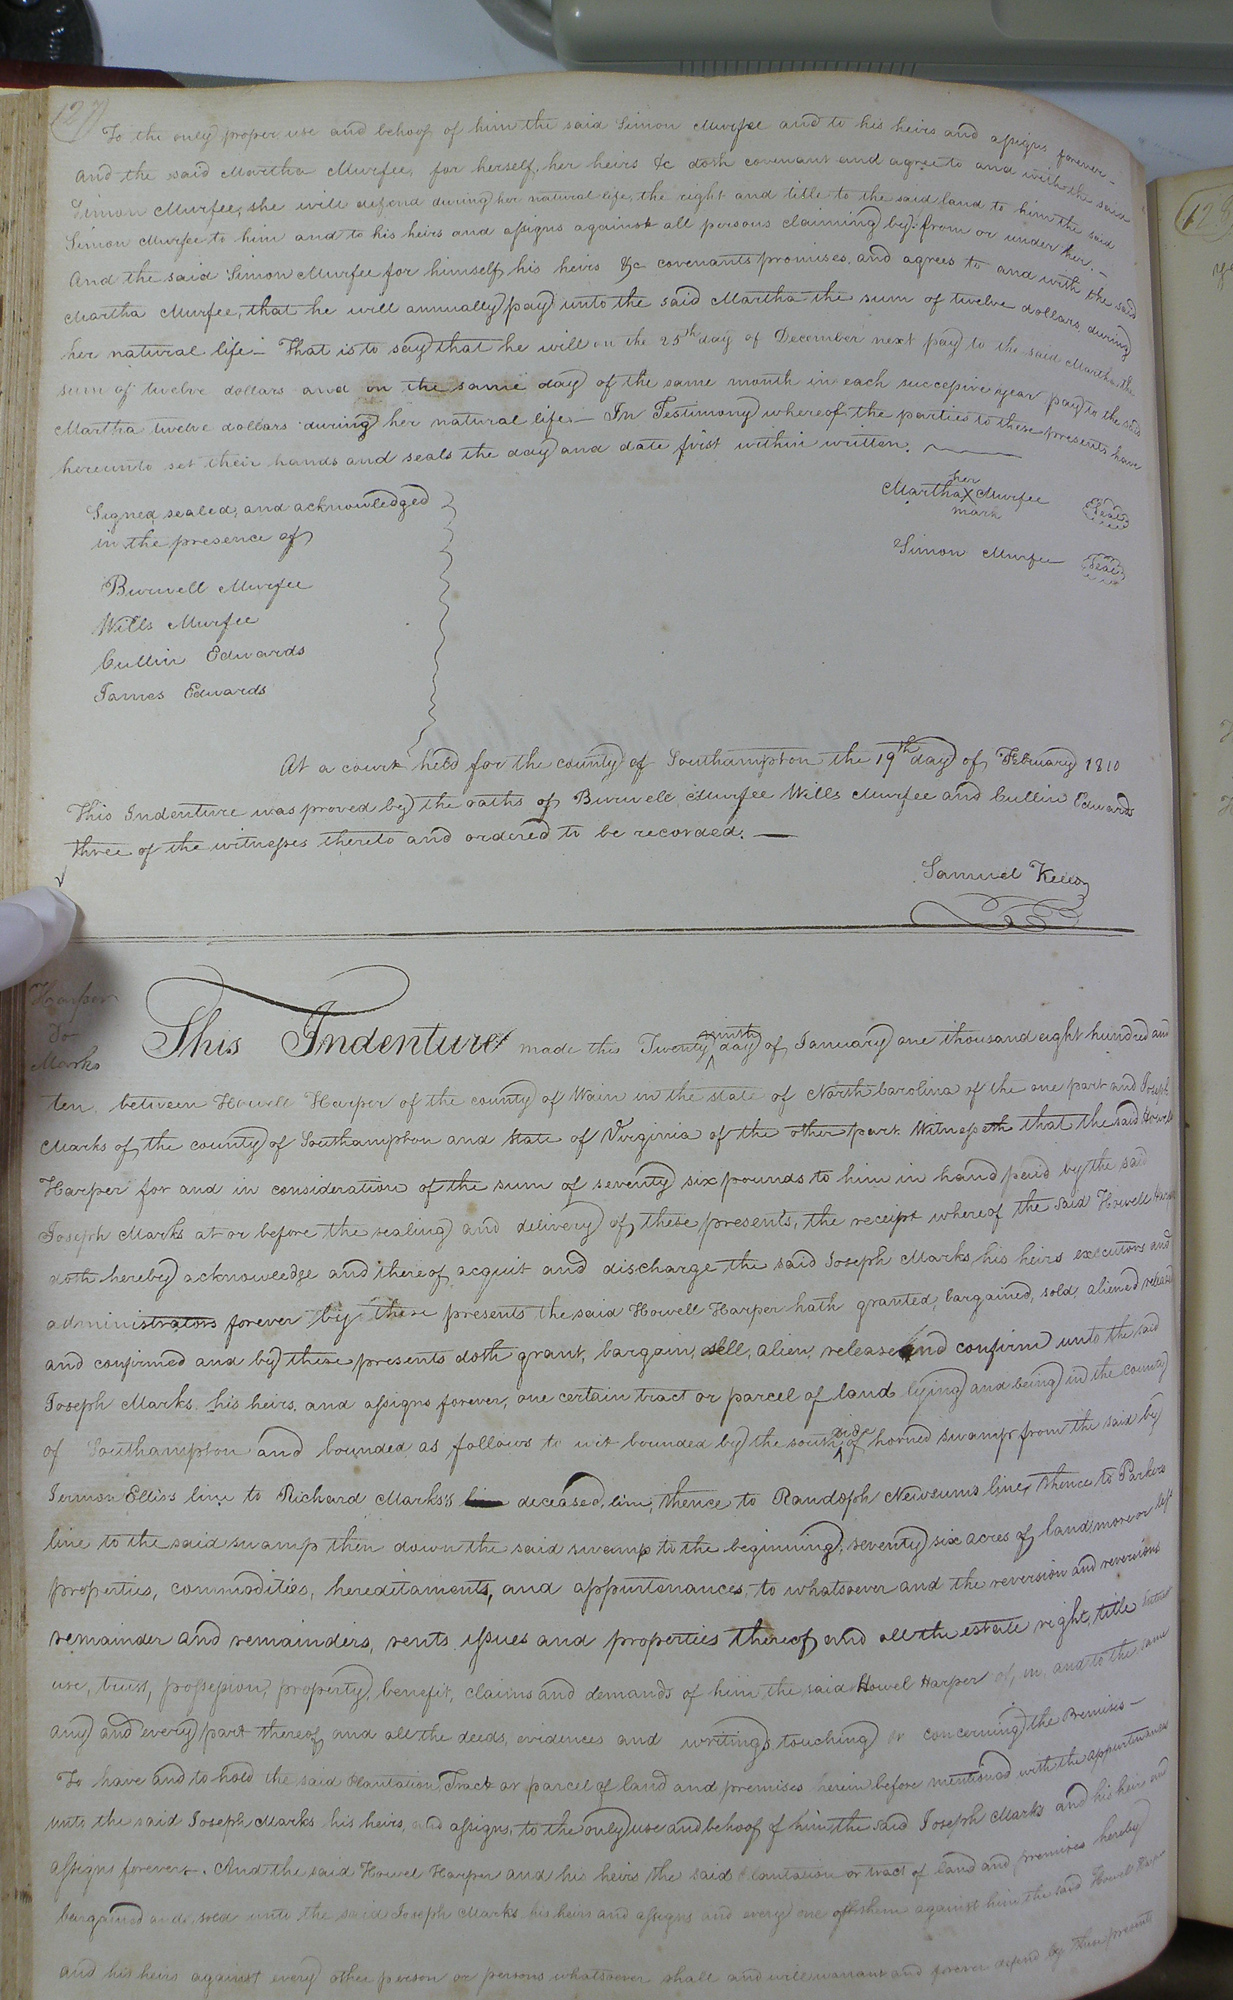 127
To the only proper use and behoof of him the said Simon Murfee and to his heirs and assigns forever -
and the said Martha Murfee, for herself, her heirs &c doth covenant and agree to and with the said
Simon Murfee, she will defend during her natural life, the right and title to the said land to him the said
Simon Murfee to him and to his heirs and assigns against all persons claiming by from or under her. -
And the said Simon Murfee for himself, his heirs &c covenants promises, and agrees to and with the said
Martha Murfee, that he will annually pay unto the said Martha the sum of twelve dollars during
her natural life - That is to say that he will on the 25th day of December next pay to the said Martha the
sum of twelve dollars and on the same day of the same month in each successive year pay to the said
Martha twelve dollars during her natural life. - In Testimony whereof the parties to these presents have
hereunto set their hands and seals the day and date first within written.
her
Martha X Murfee Seal
mark
Simon Murfee Seal
Signed, sealed, and acknowledged
in the presence of
Burwell Murfee
Wills Murfee
Cullin Edwards
James Edwards
At a court held for the county of Southampton the 19th day of February 1810
This Indenture was proved by the oaths of Burwell Murfee Wills Murfee and Cullin Edwards
three of the witnesses thereto and ordered to be recorded. -
Samuel Kello
Harper
To
Marks
This Indenture made this Twenty ninth day of January one thousand eight hundred and
ten, between Howell Harper of the county of Wain in the state of North Carolina of the one part and Joseph
Marks of the county of Southampton and State of Virginia of the other part Witnesseth that the said Howell
Harper for and in consideration of the sum of seventy six pounds to him in hand paid by the said
Joseph Marks at or before the sealing and delivery of these presents, the receipt whereof the said Howell Harper
doth hereby acknowledge and thereof acquit and discharge the said Joseph Marks his heirs executors and
administrators forever by these presents the said Howell Harper hath granted, bargained, sold, aliened released
and confirmed and by these presents doth grant, bargain, sell, alien, release and confirm unto the said
Joseph Marks, his heirs, and assigns forever, one certain tract or parcel of land lying and being in the county
of Southampton and bounded as follows to wit bounded by the south side of horned swamp from the said by
Jermon Elliss line to Richard Marks's deceased, line, thence to Randolph Newsums line, thence to Parkers
line to the said swamp then down the said swamp to the beginning, seventy six acres of land more or less
properties, commodities, hereditaments, and appurtenances, to whatsoever and the reversion and reversions
remainder and remainders, rents, issues and properties thereof and all the estate right, title interest
use, trust, possession, property, benefit, claims and demands of him the said Howel Harper of, in, and to the same
any and every part thereof, and all the deeds, evidences and writings touching or concerning the Premises -
To have and to hold the said Plantation, Tract or parcel of land and premises herein before mentioned with the appurtenances
unto the said Joseph Marks, his heirs, and assigns, to the only use and behoof of him the said Joseph Marks and his heirs and
assigns forever. And the said Howel Harper and his heirs the said plantation or tract of land and premises hereby
bargained and sold unto the said Joseph Marks his heirs and assigns and every one of them against him the said Howell Harper
and his heirs against every other person or persons whatsoever shall and will warrant and forever defend by these presents
128